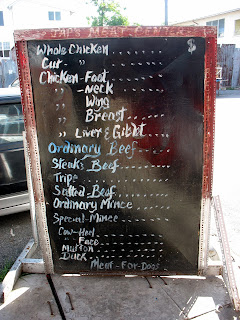 JAP'S MEAT CENTER
$
Whole Chicken ........
Cut " ........
Chicken-Foot ........
" -Neck ........
" Wing ........
" Breast ........
" Liver & Giblet ........
Ordinary Beef ........
Steaks Beef ........
Tripe ........
Salted-Beef ........
Ordinary Mince ........
Special-Mince ........
Cow-Heel ........
" Face ........
Mutton ........
Duck ........
Meat-For-Dogs